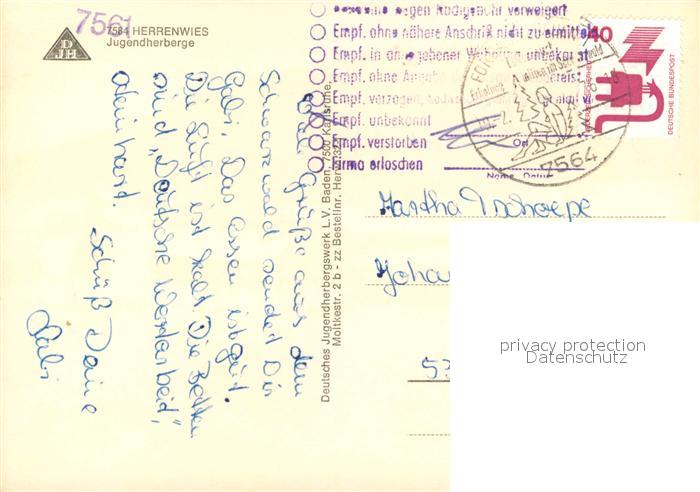 7561
7584 HERRENWIES
Jugendherberge
DJH
Viele Grüße aus dem
Schwarzwald sendet Dir
Gabi. Das Essen ist gut.
Die Luft ist kalt. Die Betten
sind „Deutsche Wertarbeit“,
steinhart.
Schüß Deine
Gabi
Deutsches Jugendherbergswerk L.V. Baden, 7500 Karlsruhe,
Moltkestr. 2 b - zz Bestellnr. Her
verweigert
Empf. ohne nähere Anschrift nicht zu ermitteln
Empf. in angegebener Wohnung unbekannt
Empf. ohne Angabe
Empf. verzogen,
Empf. unbekannt
Empf. verstorben
Firma erloschen
Ort
Name, Datum
7564
40
DEUTSCHE BUNDESPOST
Martha
Joha
53
privacy protection
Datenschutz